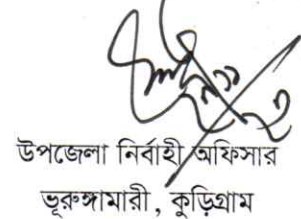 উপজেলা নির্বাহী অফিসার
ভূরুঙ্গামারী, কুড়িগ্রাম